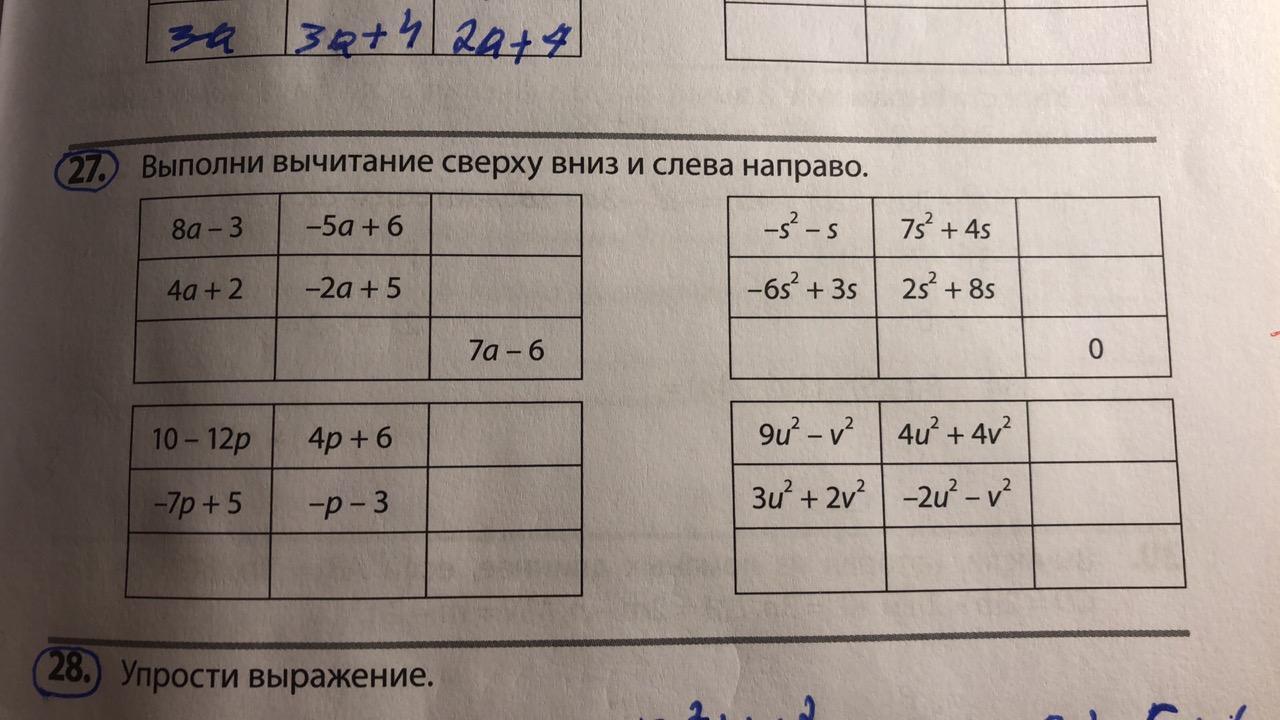 3a 3a+4 2a+4
27. Выполни вычитание сверху вниз и слева направо.
8a – 3 –5a + 6
4a + 2 –2a + 5
7a – 6
–s² – s 7s² + 4s
–6s² + 3s 2s² + 8s
0
10 – 12p 4p + 6
–7p + 5 –p – 3
9u² – v² 4u² + 4v²
3u² + 2v² –2u² – v²
28. Упрости выражение.